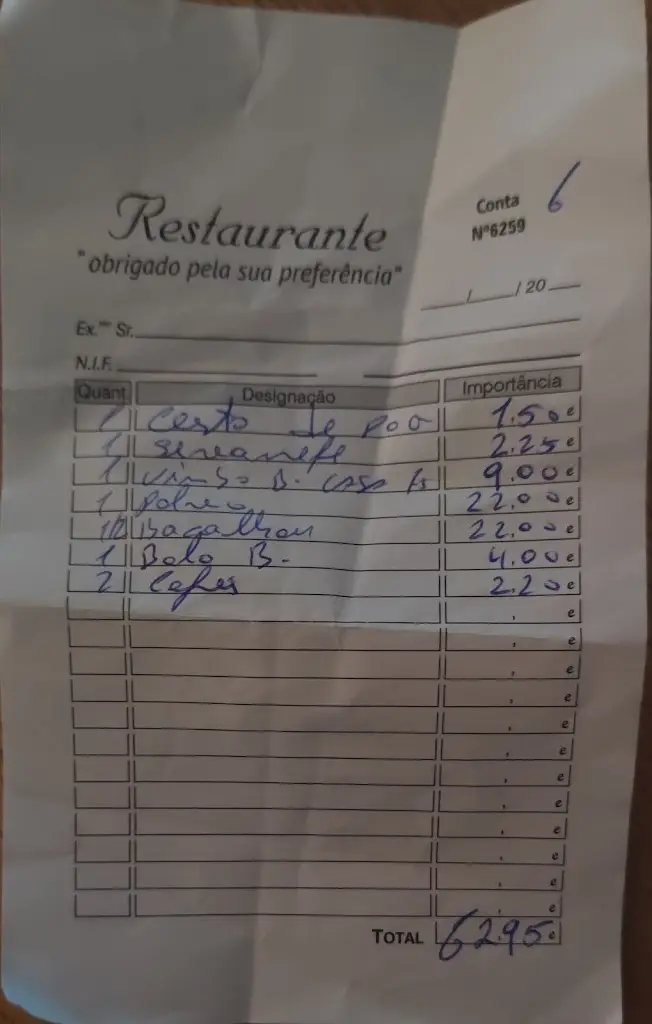 Restaurante
"obrigado pela sua preferência"
Conta 6
Nº6259
/ / 20
Ex.mo Sr.
N.I.F.
Quant. Designação Importância
1 Cesto de pão 1.50 €
1 2.25 €
1 Vinho B. casa 9.00 €
1 Polvo 22.00 €
1/2 Bacalhau 22.00 €
1 Bolo B. 4.00 €
2 Cafés 2.20 €
, €
, €
, €
, €
, €
, €
, €
, €
, €
, €
, €
, €
TOTAL 62.95 €